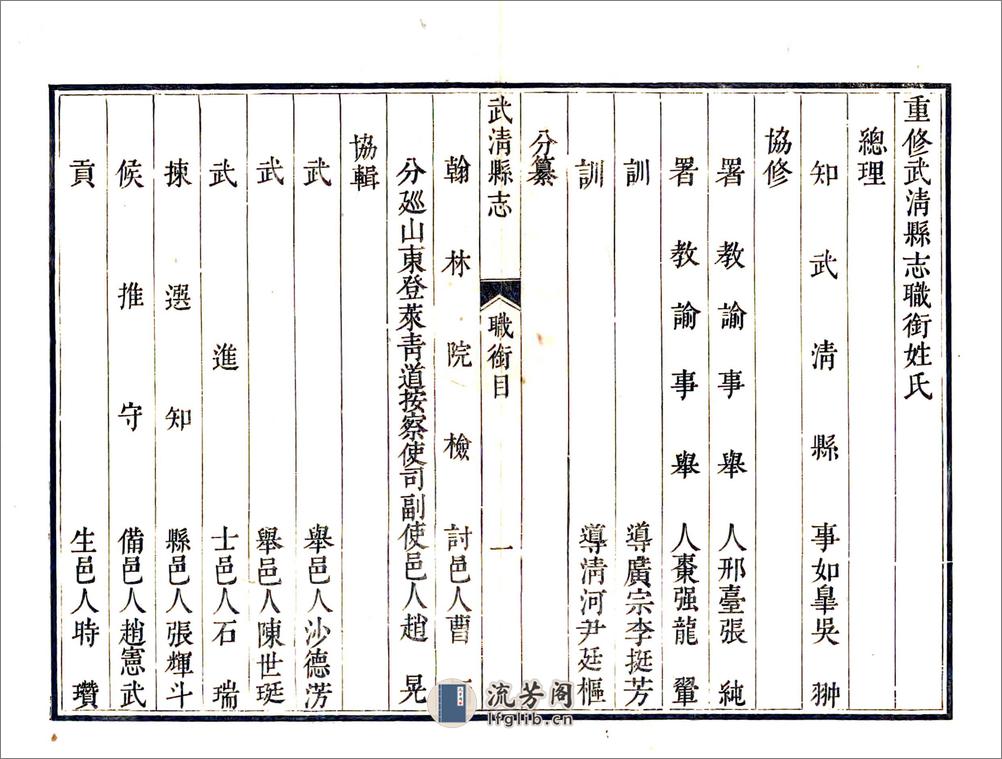 重修武淸縣志職銜姓氏
總理
知武淸縣事如臯吳翀
協修
署教諭事舉人邢臺張純
署教諭事舉人棗强龍翬
訓導廣宗李挺芳
訓導淸河尹廷樞
分纂
武淸縣志 職銜目 一
翰林院檢討邑人曹
分廵山東登萊靑道按察使司副使邑人趙晃
協輯
武舉邑人沙德淓
武舉邑人陳世珽
武進士邑人石瑞
揀選知縣邑人張輝斗
候推守備邑人趙憲武
貢生邑人時瓚
流芳阁
lfglib.cn